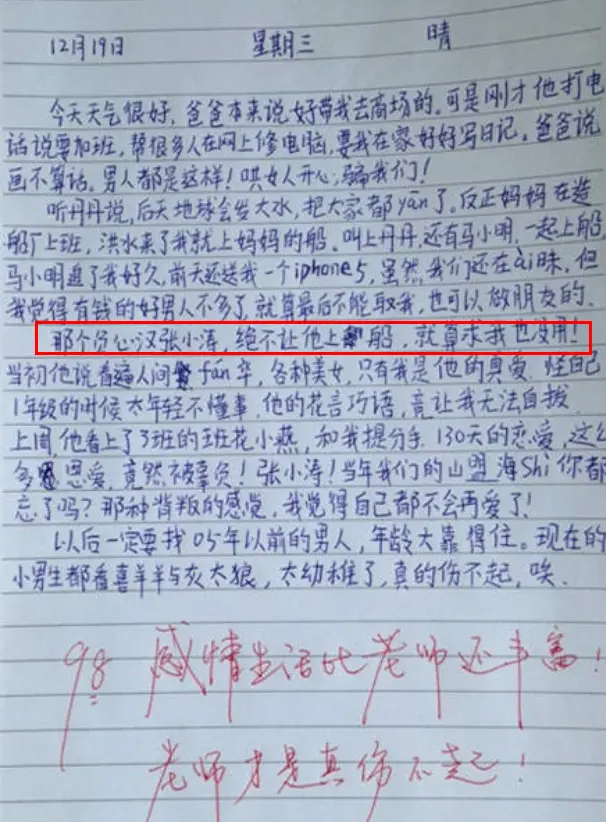 12月19日 星期三 晴
今天天气很好,爸爸本来说好带我去商场的。可是刚才他打电
话说要加班,帮很多人在网上修电脑,要我在家好好写日记。爸爸说
画不算话。男人都是这样!哄女人开心,骗我们!
听丹丹说,后天地球会发大水,把大家都yān了。反正妈妈在造
船厂上班,洪水来了我就上妈妈的船。叫上丹丹,还有马小明,一起上船
马小明追了我好久,前天还送我一个iphone5,虽然我们还在ài昧,但
我觉得有钱的好男人不多了,就算最后不能取我,也可以做朋友的。
那个负心汉张小涛,绝不让他上船,就算求我也没用!
当初他说看遍人间fán华,各种美女,只有我是他的真爱。怪自己
1年级的时候太年轻不懂事,他的花言巧语,竟让我无法自拔
上周,他看上了3班的班花小燕,和我提分手.130天的恋爱,这么
多恩爱,竟然被辜负!张小涛!当年我们的山盟海Shi你都
忘了吗?那种背叛的感觉,我觉得自己都不会再爱了!
以后一定要找05年以前的男人,年龄大靠得住。现在的
小男生都看喜羊羊与灰太狼,太幼稚了,真的伤不起,唉.
98 感情生活比老师还丰富!
老师才是真伤不起!